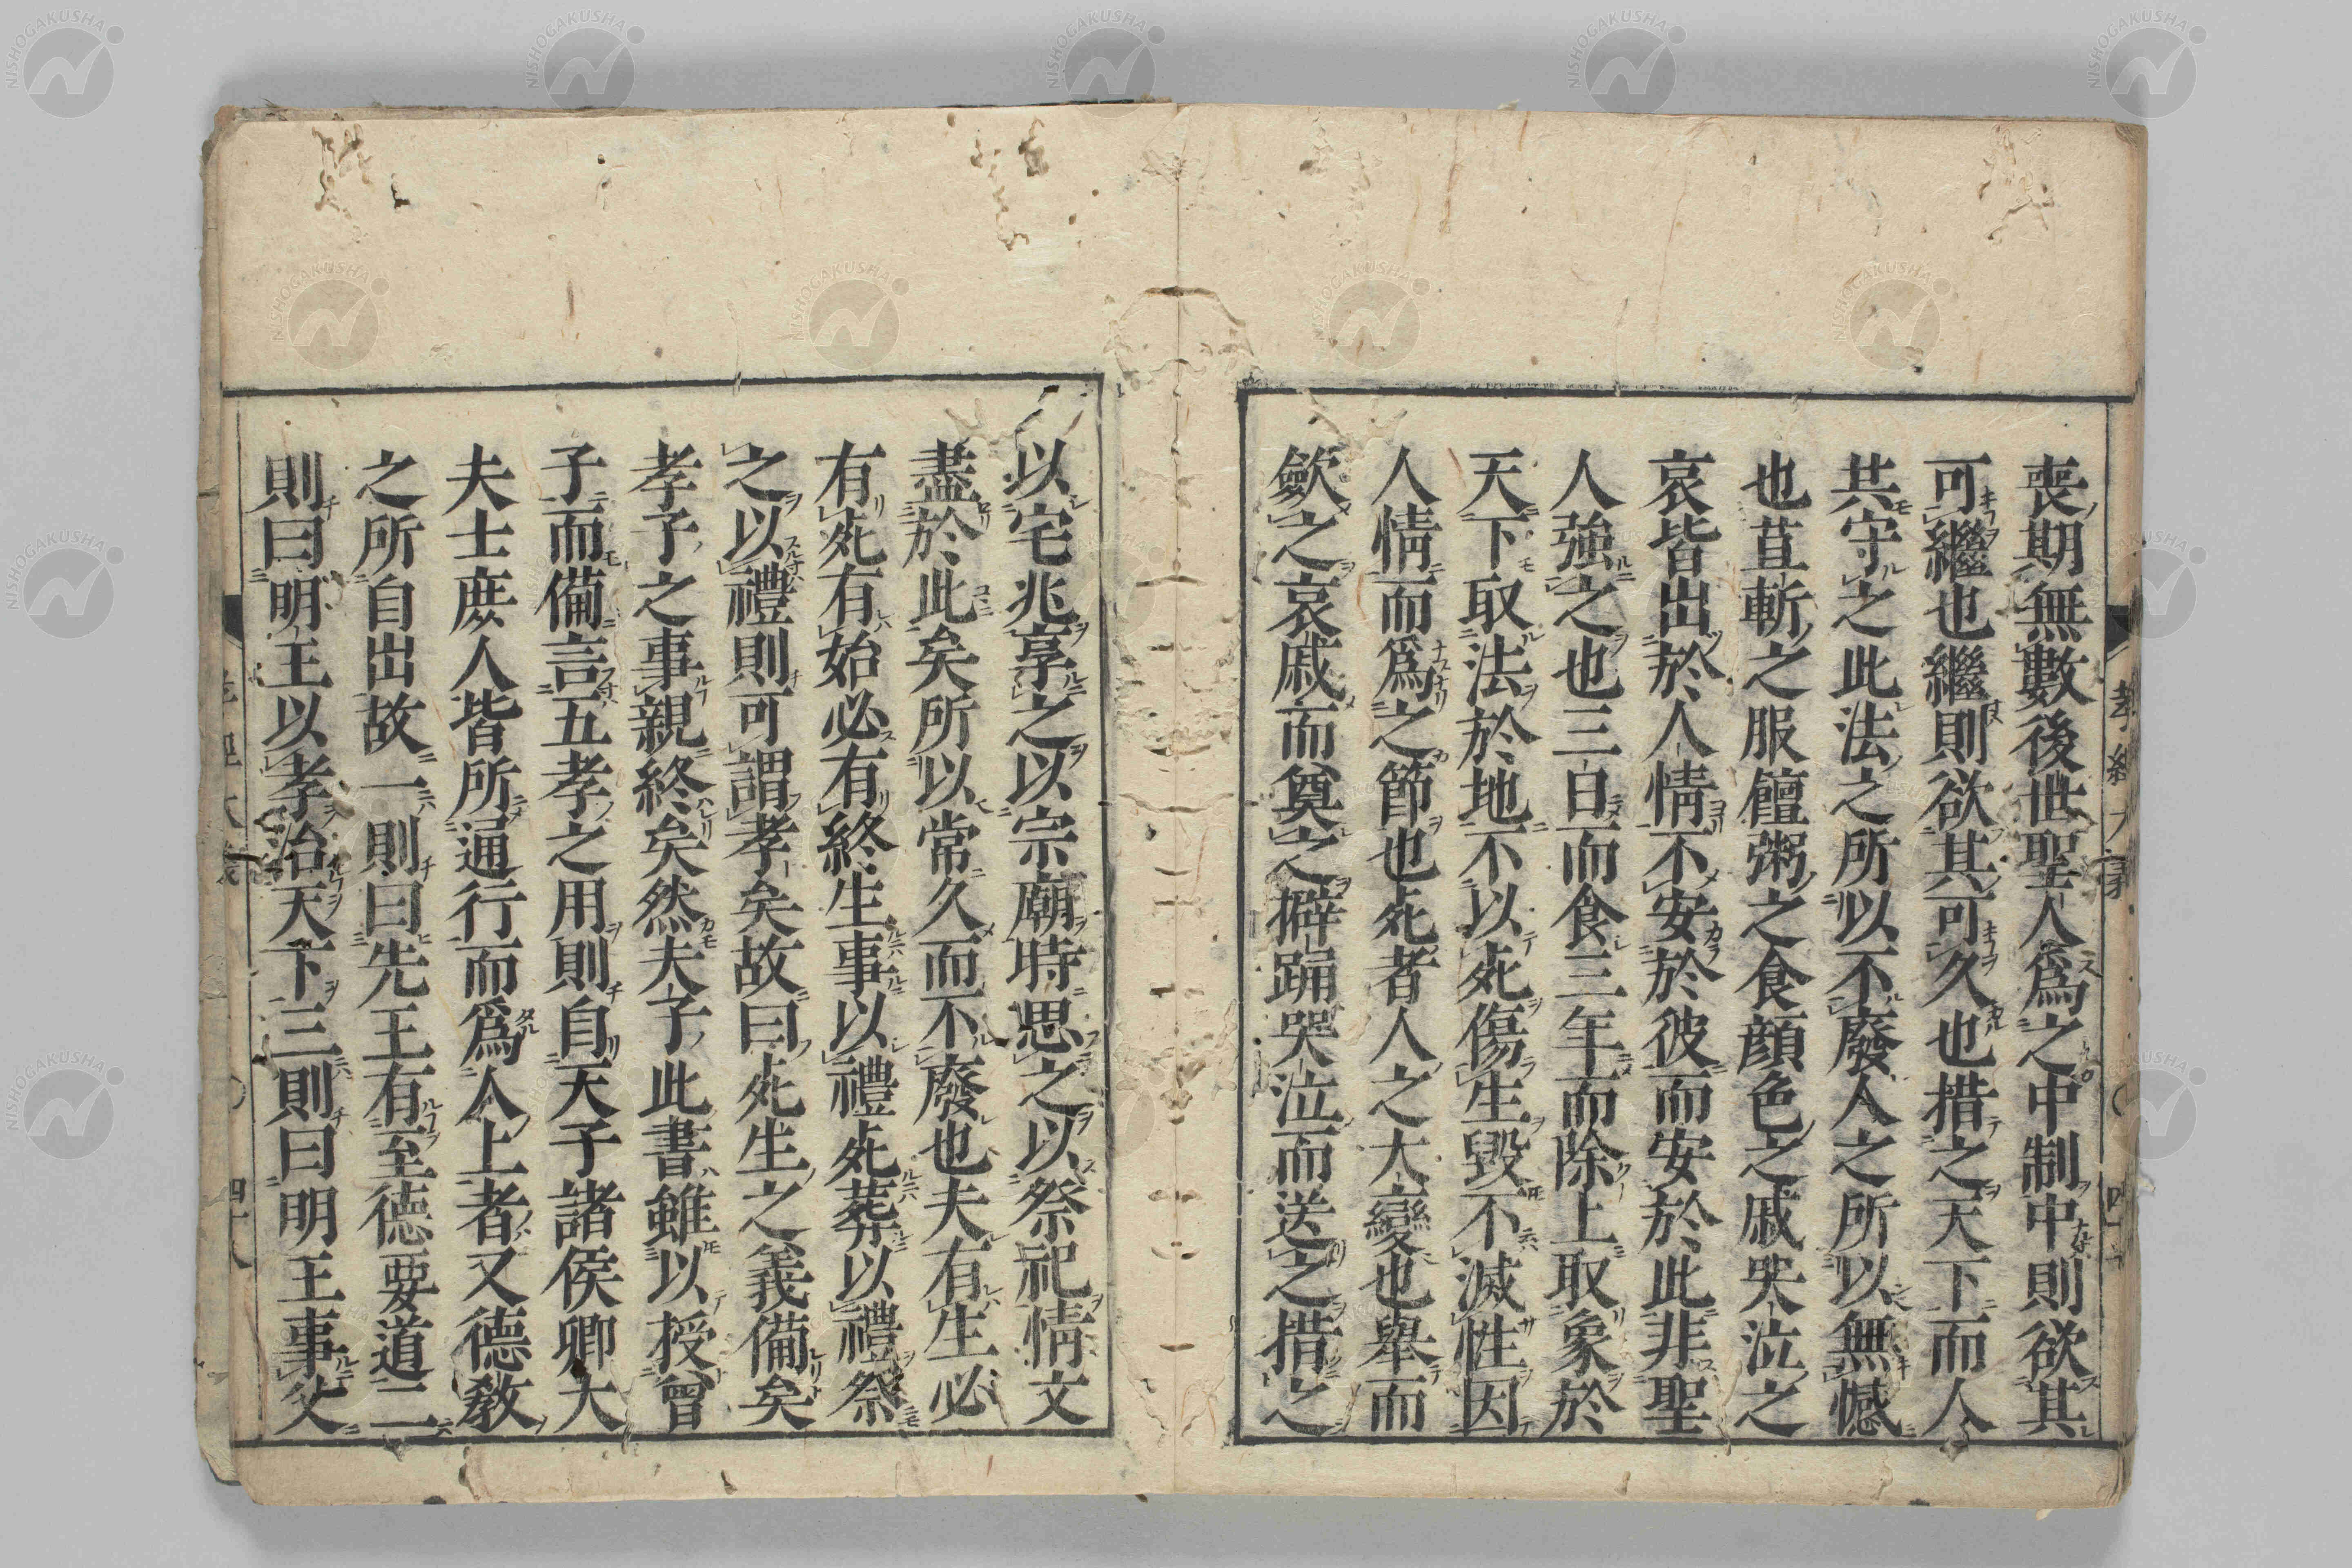 喪期無數後世聖人爲之中制中則欲其
可繼也繼則欲其可久也措之天下而人
共守之此法之所以不廢人之所以無憾
也苴斬之服饘粥之食顔色之戚哭泣之
哀皆出於人情不安於彼而安於此非聖
人強之也三日而食三年而除上取象於
天下取法於地不以死傷生毀不滅性因
人情而爲之節也死者人之大變也舉而
斂之哀戚而奠之擗踊哭泣而送之措之
以宅兆享之以宗廟時思之以祭祀情文
盡於此矣所以常久而不廢也夫有生必
有死有始必有終生事以禮死葬以禮祭
之以禮則可謂孝矣故曰死生之義備矣
孝子之事親終矣然夫子此書雖以授曾
子而備言五孝之用則自天子諸侯卿大
夫士庶人皆所通行而爲人上者又德教
之所自出故一則曰先王有至德要道二
則曰明王以孝治天下三則曰明王事父
NISHOGAKUSHA